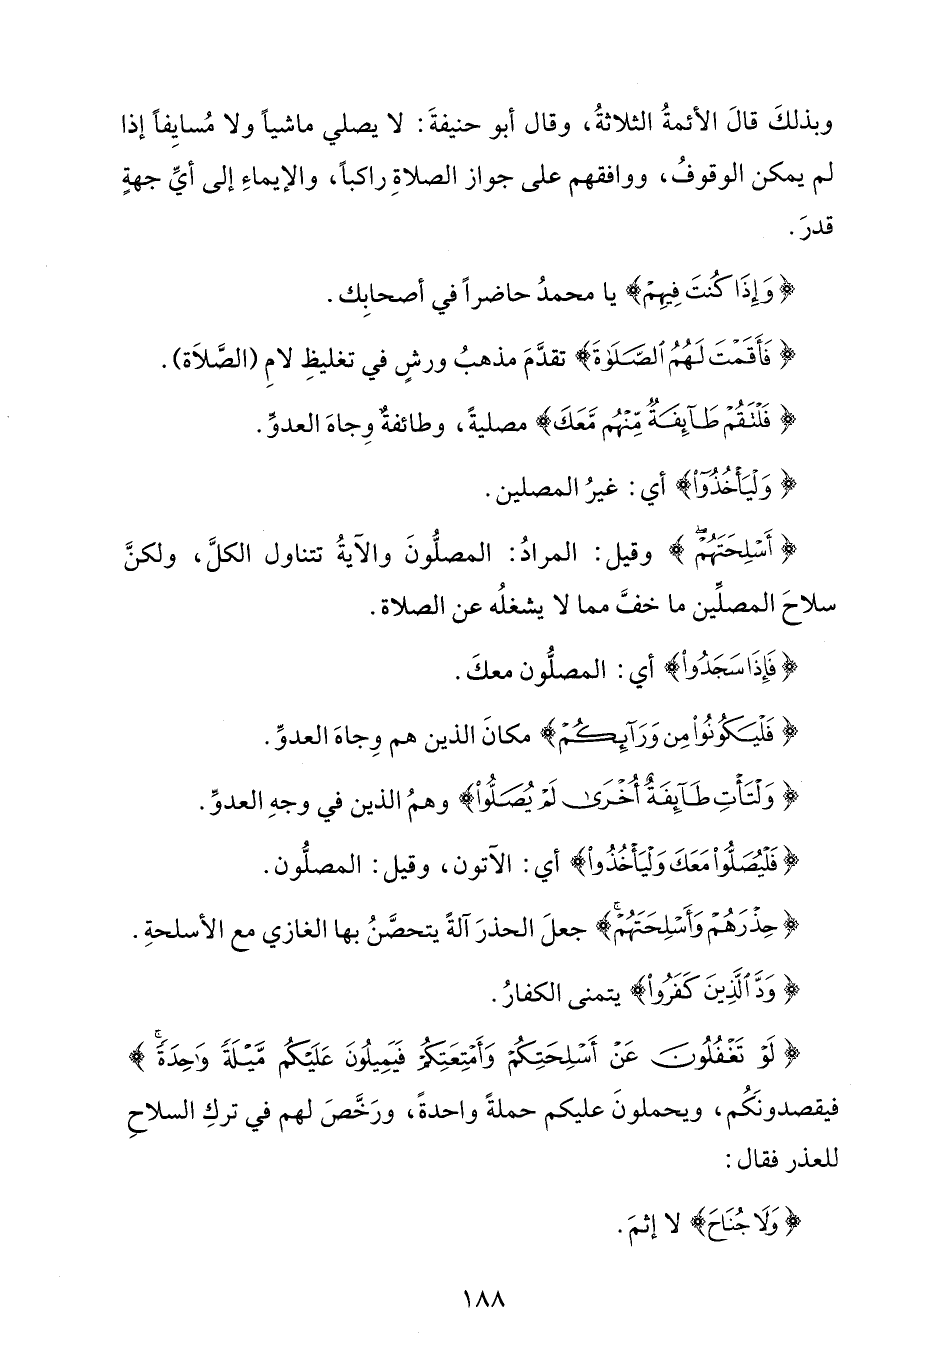 وبذلكَ قالَ الأئمةُ الثلاثةُ، وقال أبو حنيفةَ: لا يصلي ماشياً ولا مُسايِفاً إذا
لم يمكن الوقوفُ، ووافقهم على جواز الصلاةِ راكباً، والإيماءِ إلى أيِّ جهةٍ
قدرَ.
﴿وَإِذَا كُنتَ فِيهِمْ﴾ يا محمدُ حاضراً في أصحابِك.
﴿فَأَقَمْتَ لَهُمُ ٱلصَّلَوٰةَ﴾ تقدَّمَ مذهبُ ورشٍ في تغليظِ لامِ (الصَّلاَة).
﴿فَلْتَقُمْ طَآئِفَةٌ مِّنْهُم مَّعَكَ﴾ مصليةً، وطائفةٌ وِجاهَ العدوِّ.
﴿وَلْيَأْخُذُوٓاْ﴾ أي: غيرُ المصلين.
﴿أَسْلِحَتَهُمْۖ﴾ وقيل: المرادُ: المصلُّونَ والآيةُ تتناول الكلَّ، ولكنَّ
سلاحَ المصلِّين ما خفَّ مما لا يشغلُه عن الصلاة.
﴿فَإِذَا سَجَدُواْ﴾ أي: المصلُّون معكَ.
﴿فَلْيَكُونُواْ مِن وَرَآئِكُمْ﴾ مكانَ الذين هم وِجاهَ العدوِّ.
﴿وَلْتَأْتِ طَآئِفَةٌ أُخْرَىٰ لَمْ يُصَلُّواْ﴾ وهمُ الذين في وجهِ العدوِّ.
﴿فَلْيُصَلُّواْ مَعَكَ وَلْيَأْخُذُواْ﴾ أي: الآتون، وقيل: المصلُّون.
﴿حِذْرَهُمْ وَأَسْلِحَتَهُمْۗ﴾ جعلَ الحذرَ آلةً يتحصَّنُ بها الغازي مع الأسلحةِ.
﴿وَدَّ ٱلَّذِينَ كَفَرُواْ﴾ يتمنى الكفارُ.
﴿لَوْ تَغْفُلُونَ عَنْ أَسْلِحَتِكُمْ وَأَمْتِعَتِكُمْ فَيَمِيلُونَ عَلَيْكُم مَّيْلَةً وَٰحِدَةًۚ﴾
فيقصدونَكُم، ويحملونَ عليكم حملةً واحدةً، ورَخَّصَ لهم في تركِ السلاحِ
للعذر فقال:
﴿وَلَا جُنَاحَ﴾ لا إثمَ.
١٨٨